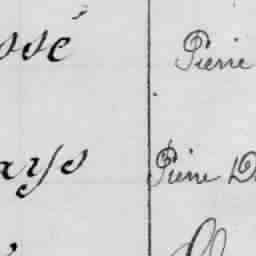 ssé Pierre
ays Pierre D